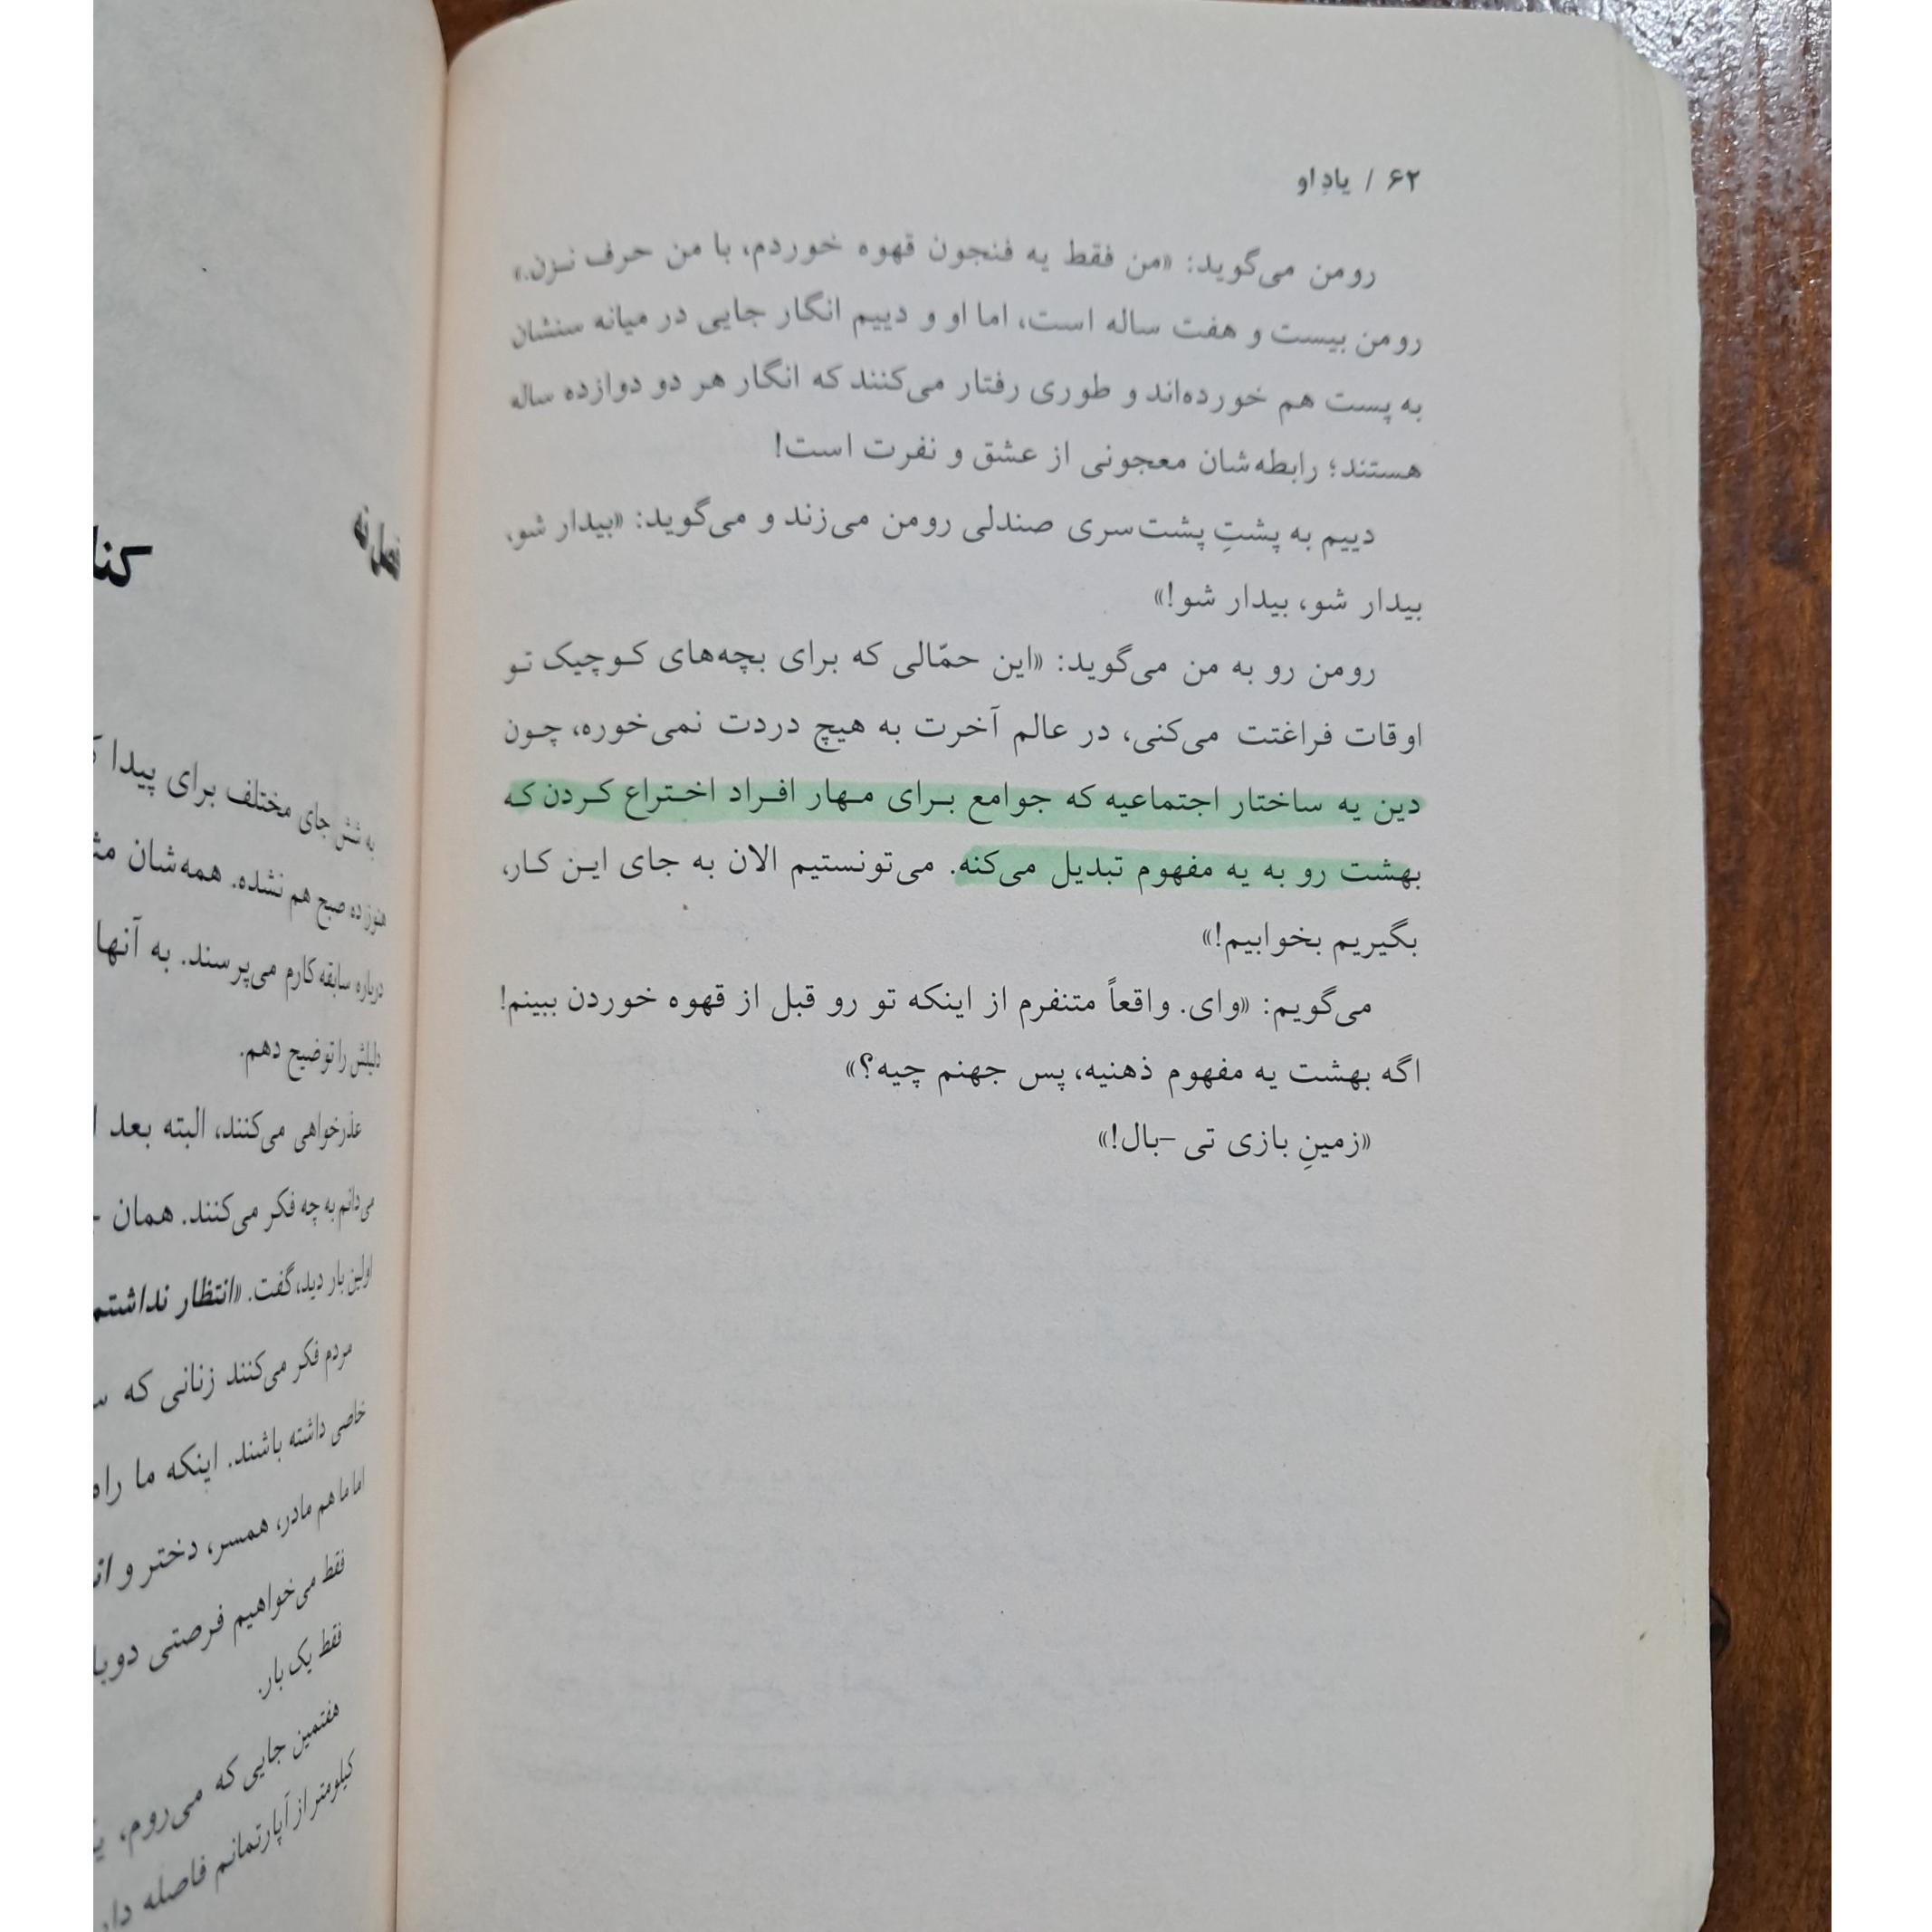 ۶۲ / یادِ او
رومن می‌گوید: «من فقط یه فنجون قهوه خوردم، با من حرف نزن.»
رومن بیست و هفت ساله است، اما او و دییم انگار جایی در میانه سنشان
به پست هم خورده‌اند و طوری رفتار می‌کنند که انگار هر دو دوازده ساله
هستند؛ رابطه‌شان معجونی از عشق و نفرت است!
دییم به پشتِ پشت‌سری صندلی رومن می‌زند و می‌گوید: «بیدار شو،
بیدار شو، بیدار شو!»
رومن رو به من می‌گوید: «این حمّالی که برای بچه‌های کوچیک تو
اوقات فراغتت می‌کنی، در عالم آخرت به هیچ دردت نمی‌خوره، چون
دین یه ساختار اجتماعیه که جوامع برای مهار افراد اختراع کردن که
بهشت رو به یه مفهوم تبدیل می‌کنه. می‌تونستیم الان به جای این کار،
بگیریم بخوابیم!»
می‌گویم: «وای. واقعاً متنفرم از اینکه تو رو قبل از قهوه خوردن ببینم!
اگه بهشت یه مفهوم ذهنیه، پس جهنم چیه؟»
«زمینِ بازی تی –بال!»
فصل نه
به شش جای مختلف برای پیدا
هنوز ده صبح هم نشده. همه‌شان
درباره سابقه کارم می‌پرسند. به آنها
دلیلش را توضیح دهم.
عذرخواهی می‌کنند، البته بعد
می‌دانم به چه فکر می‌کنند. همان
اولین بار دید، گفت. «انتظار نداشتم
مردم فکر می‌کنند زنانی که
خاصی داشته باشند. اینکه ما
اما ما هم مادر، همسر، دختر و
فقط می‌خواهیم فرصتی
فقط یک بار.
هفتمین جایی که می‌روم،
کیلومتر از آپارتمانم فاصله